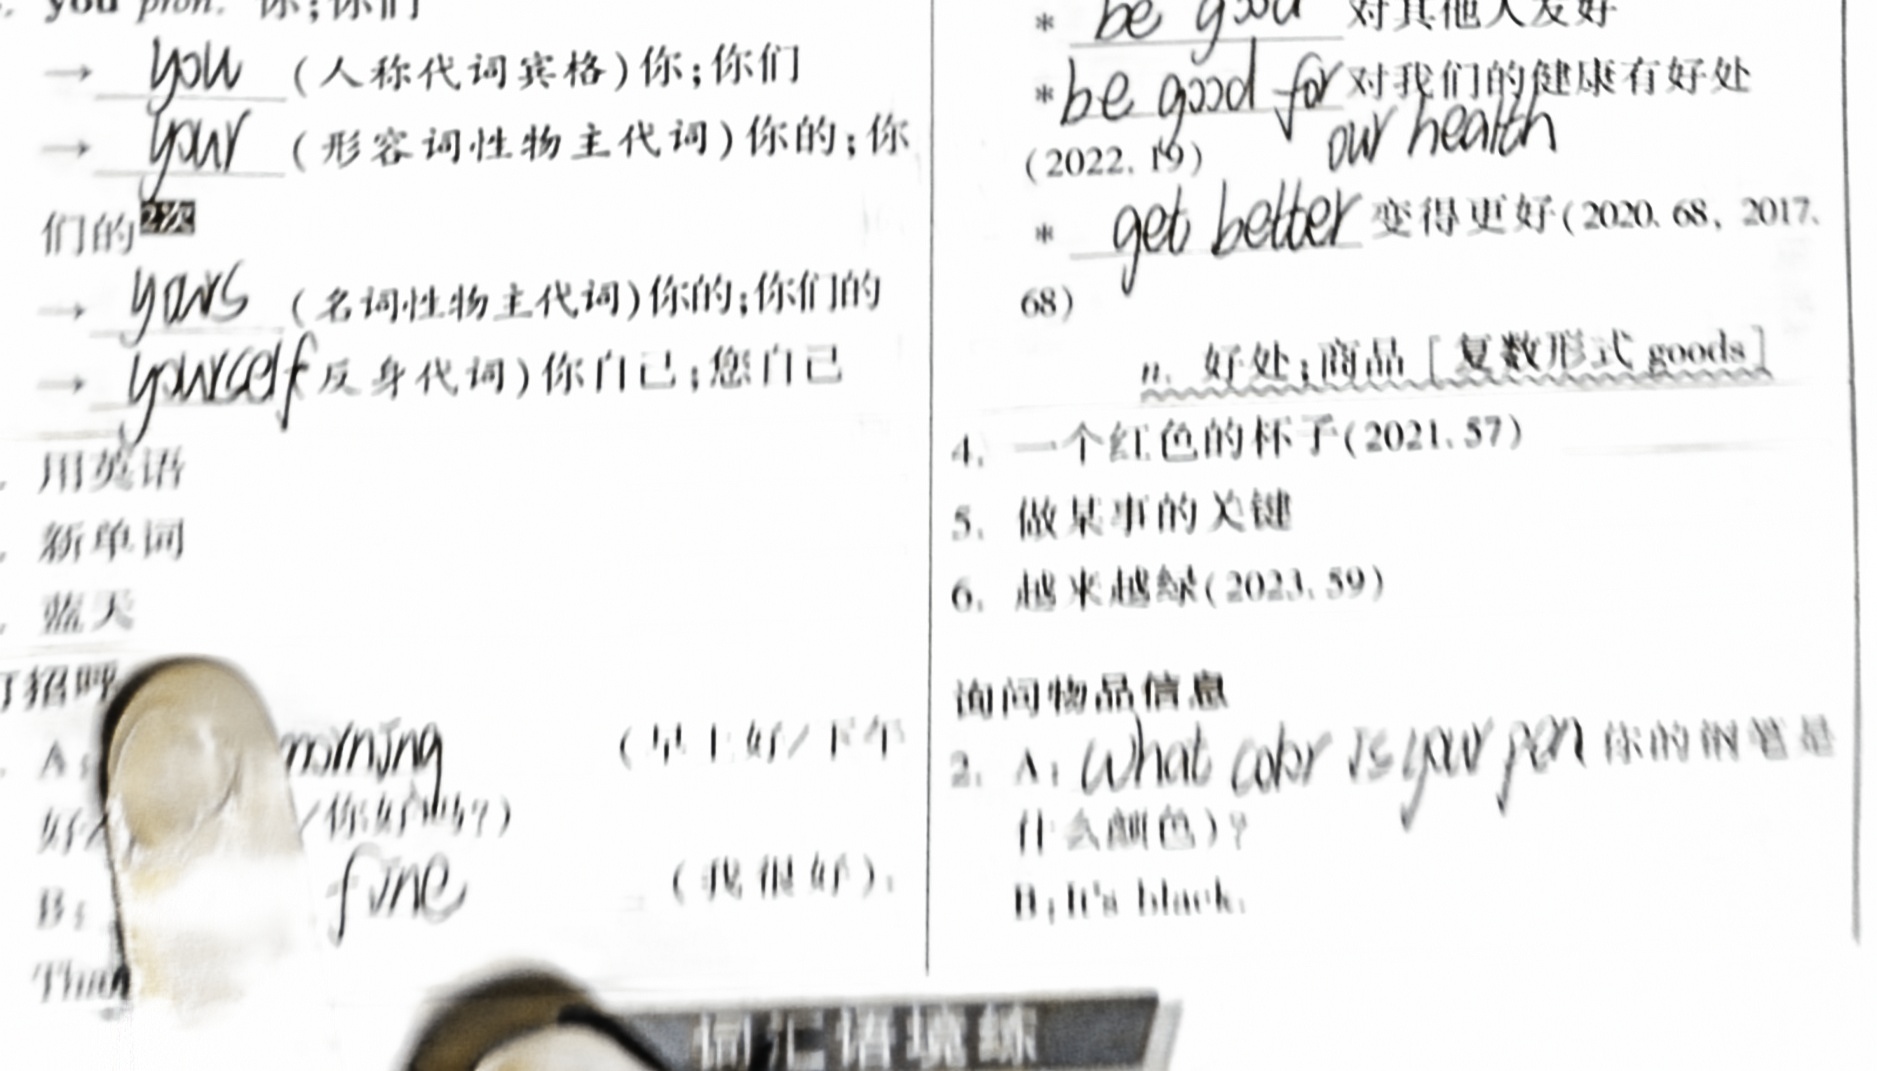 you pron. 你;你们
→ you (人称代词宾格)你;你们
→ your (形容词性物主代词)你的;你
们的2次
→ yours (名词性物主代词)你的;你们的
→ yourself 反身代词)你自己;您自己
用英语
新单词
蓝天
打招呼
A: morning (早上好/下午
好/你好吗?)
B: fine (我很好).
* be good 对其他人友好
* be good for 对我们的健康有好处
our health
(2022. 19)
* get better 变得更好(2020. 68, 2017.
68)
n. 好处;商品[复数形式 goods]
4. 一个红色的杯子(2021. 57)
5. 做某事的关键
6. 越来越绿(2023. 59)
询问物品信息
2. A: What color is your pen 你的钢笔是
什么颜色)?
B: It's black.
词汇语境练